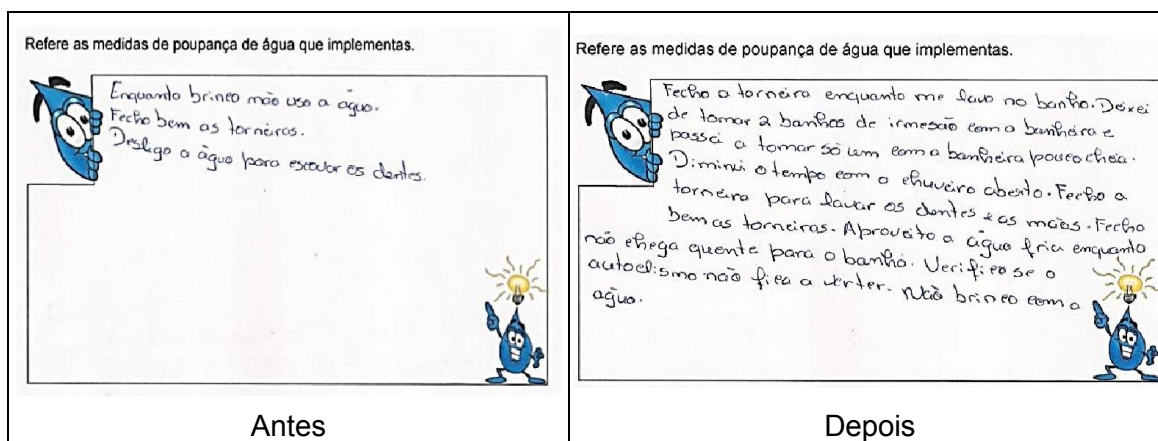 Refere as medidas de poupança de água que implementas.
Enquanto brinco não uso a água.
Fecho bem as torneiras.
Desligo a água para escovar os dentes.
Antes
Refere as medidas de poupança de água que implementas.
Fecho a torneira enquanto me lavo no banho. Deixei
de tomar 2 banhos de irmesão com a banheira e
passei a tomar só um com a banheira pouco cheia.
Diminui o tempo com o chuveiro aberto. Fecho a
torneira para lavar os dentes e as mãos. Fecho
bem as torneiras. Aproveito a água fria enquanto
não chega quente para o banho. Verifico se o
autoclismo não fica a verter. Não brinco com a
água.
Depois